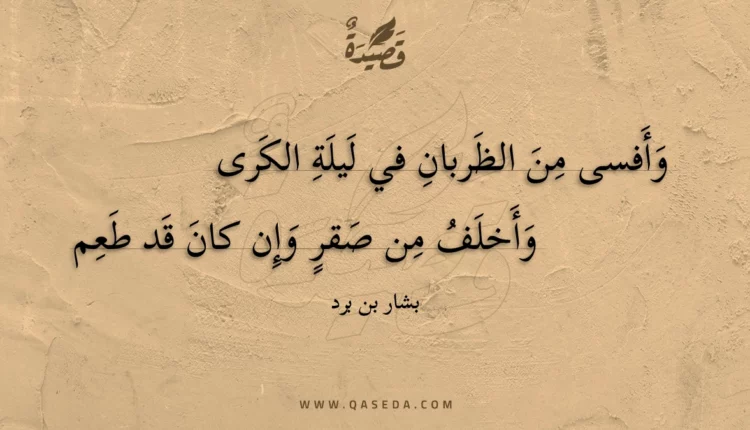 قَصِيدَةٌ
وَأَفسى مِنَ الظَربانِ في لَيلَةِ الكَرى
وَأَخلَفُ مِن صَقرٍ وَإِن كانَ قَد طَعِم
بشار بن برد
WWW.QASEDA.COM